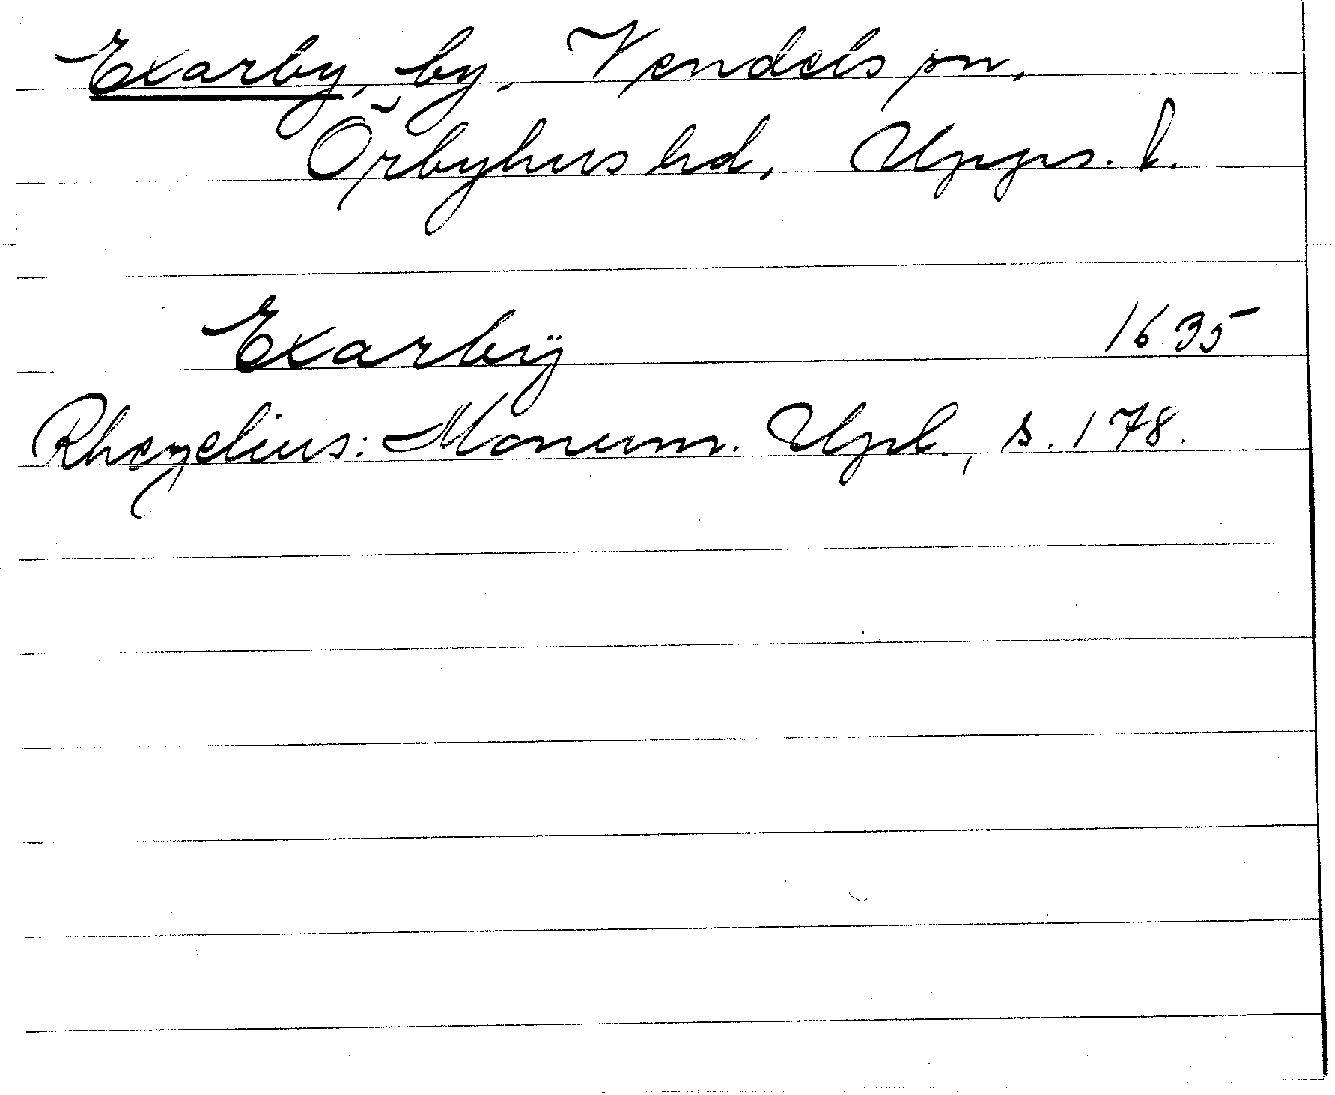 Exarby, by, Vendels sn,
Örbyhus hd, Upps. l.
Exarbÿ 1635
Rhezelius: Monum. Upl., s. 178.